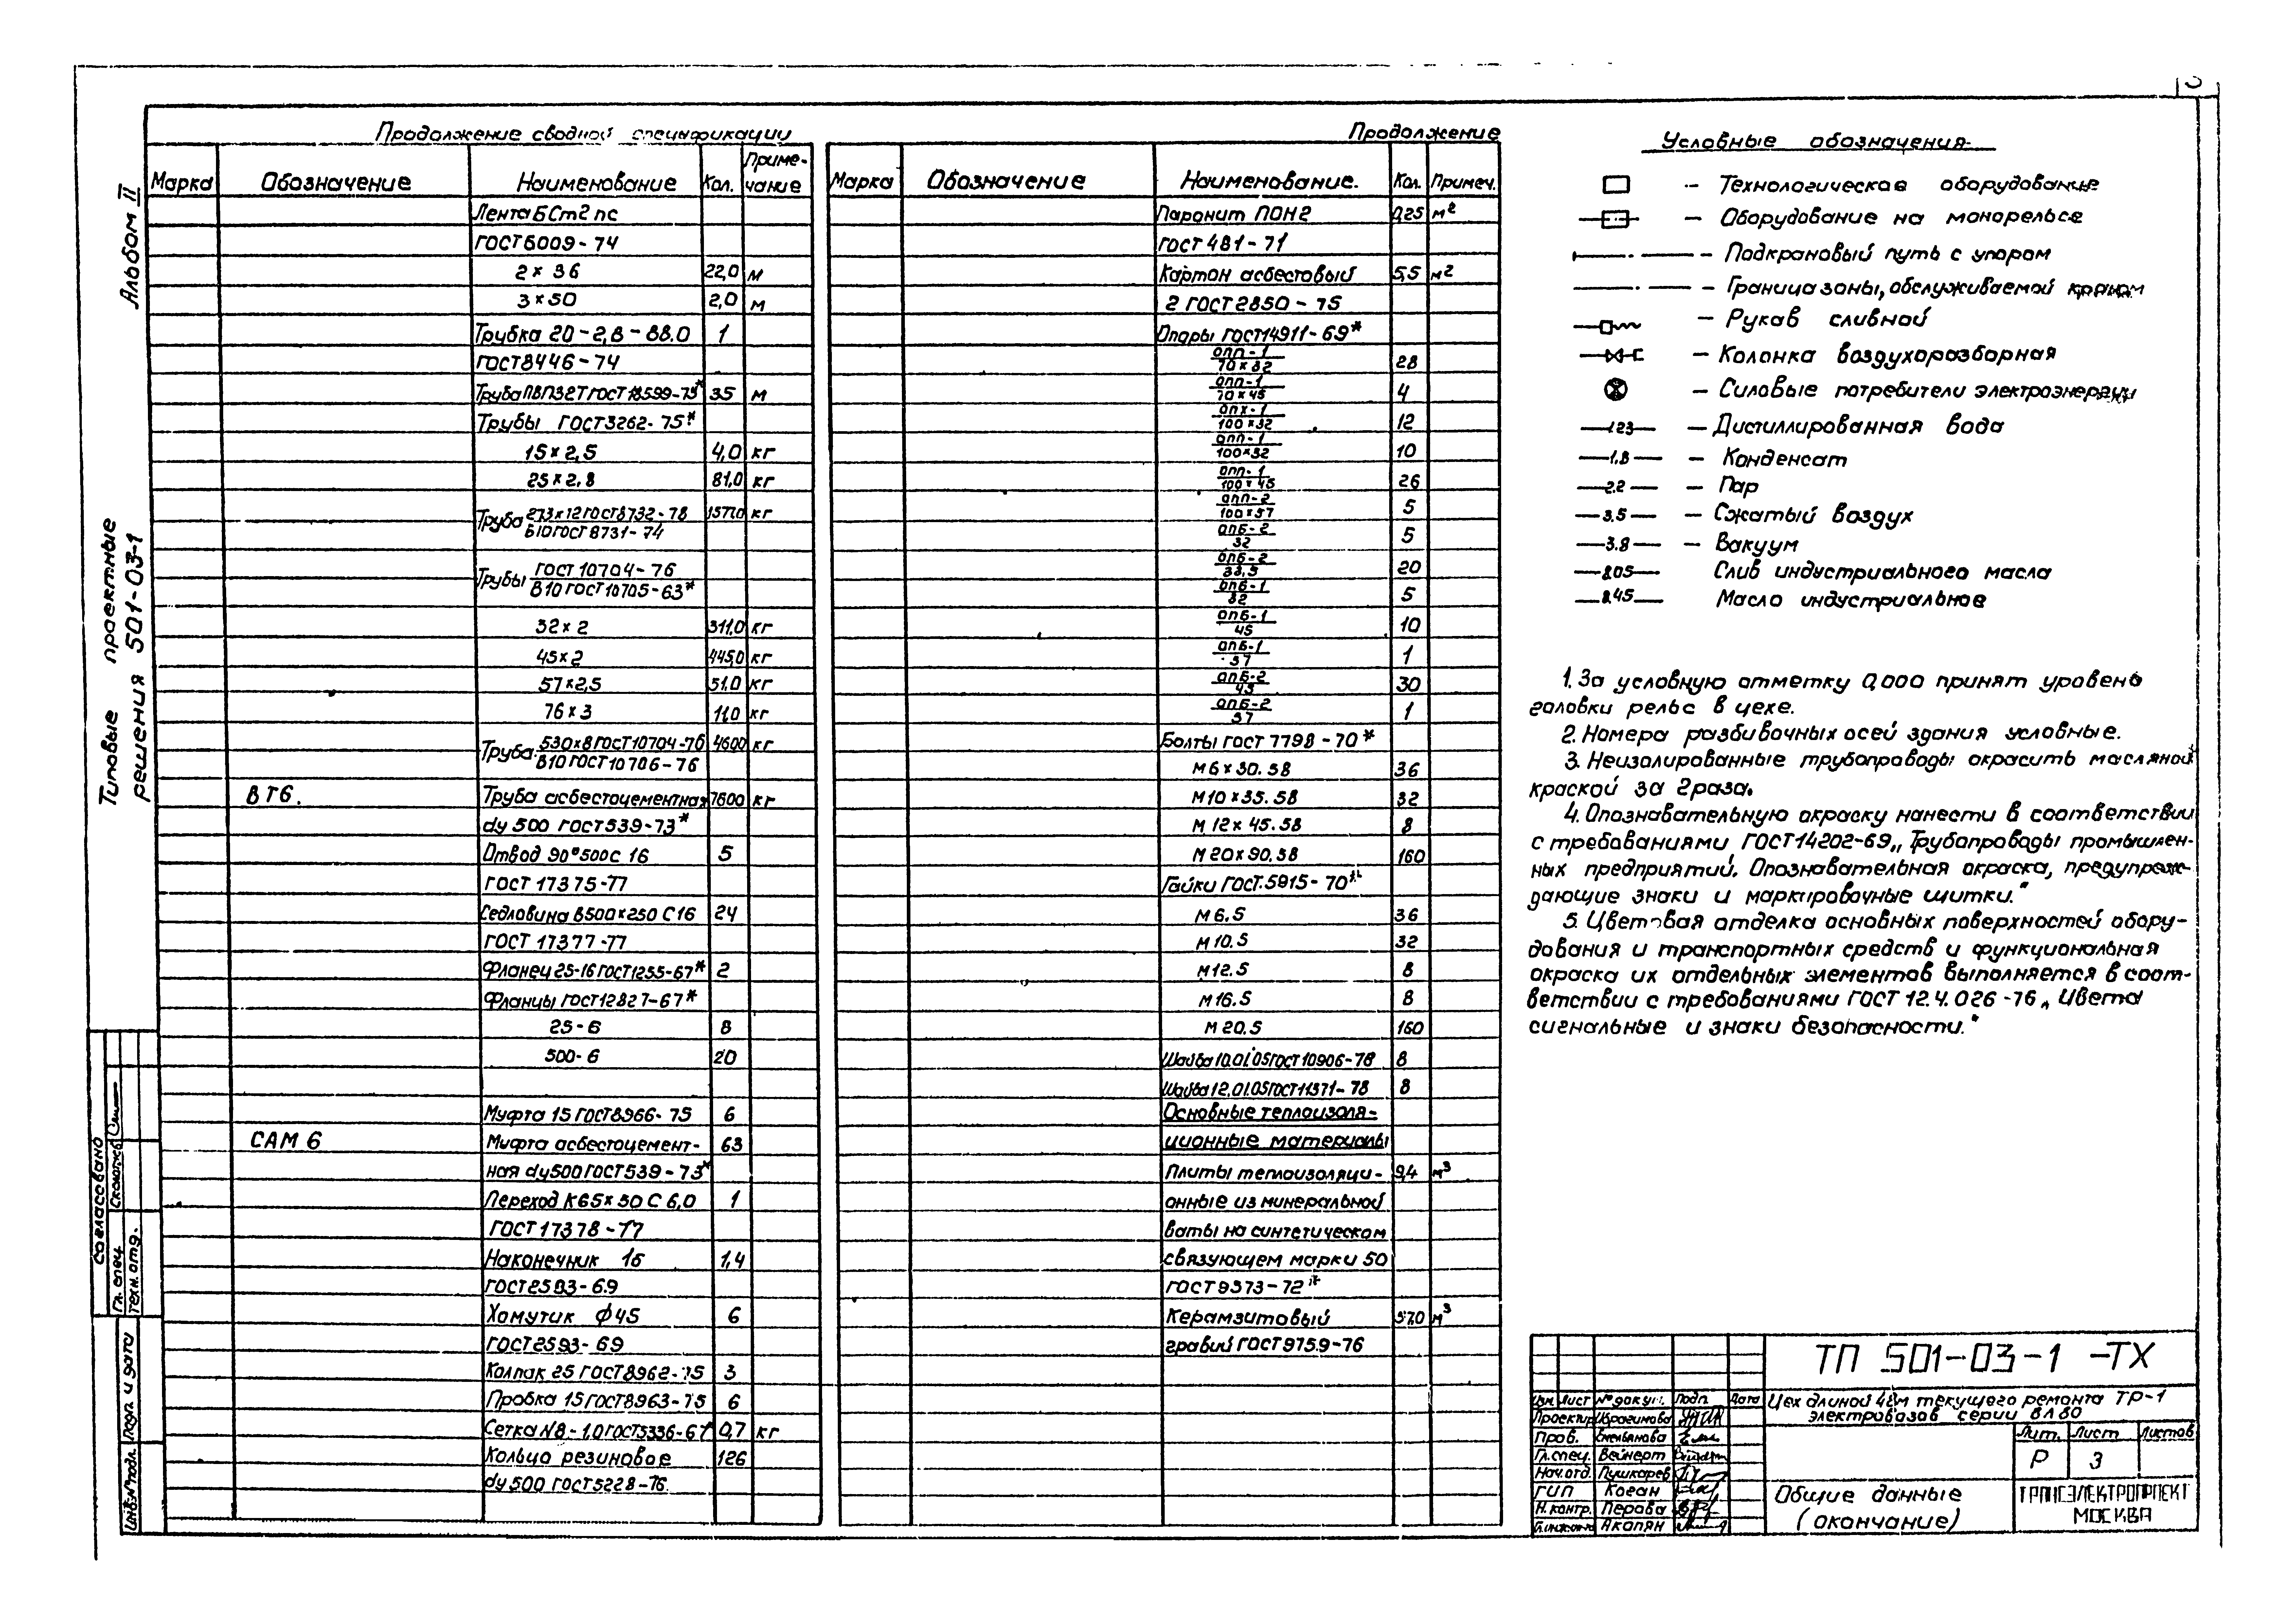 3
Альбом II
Типовые проектные
решения 501-03-1
Продолжение сводной спецификации
Марка Обозначение Наименование Кол. Приме-
чание
Лента БСт2пс
ГОСТ6009-74
2×36 22,0 м
3×50 2,0 м
Трубка 20-2,8-88.0 1
ГОСТ8446-74
Труба ПВП32Т ГОСТ18599-73* 35 м
Трубы ГОСТ3262-75*
15×2,5 4,0 кг
25×2,8 81,0 кг
Труба 273×12 ГОСТ8732-78 1577,0 кг
В10 ГОСТ8731-74
Трубы ГОСТ 10704-76
В10 ГОСТ10705-63*
32×2 311,0 кг
45×2 445,0 кг
57×2,5 51,0 кг
76×3 11,0 кг
Труба 530×8 ГОСТ10704-76 4600 кг
В10 ГОСТ10706-76
ВТ6. Труба асбестоцементная 7600 кг
dy 500 ГОСТ539-73*
Отвод 90°500С16 5
ГОСТ 17375-77
Седловина В500×250 С16 24
ГОСТ 17377-77
Фланец 25-16 ГОСТ1255-67* 2
Фланцы ГОСТ12827-67*
25-6 8
500-6 20
Муфта 15 ГОСТ8966-75 6
САМ 6 Муфта асбестоцемент- 63
ная dy500 ГОСТ539-73*
Переход К65×50 С 6,0 1
ГОСТ17378-77
Наконечник 16 1,4
ГОСТ2593-69
Хомутик ф45 6
ГОСТ2593-69
Колпак 25 ГОСТ8962-75 3
Пробка 15 ГОСТ8963-75 6
Сетка N8-1.0 ГОСТ5336-67* 0,7 кг
Кольцо резиновое 126
dy500 ГОСТ5228-76
Продолжение
Марка Обозначение Наименование. Кол. Примеч.
Паронит ПОН2 0,25 м²
ГОСТ 481-71
Картон асбестовый 5,5 м²
2 ГОСТ2850-75
Опоры ГОСТ14911-69*
ОПП-1
70×32 28
ОПП-1
70×45 4
ОПХ-1
100×32 12
ОПП-1
100×32 10
ОПП-1
100×45 26
ОПП-2
100×57 5
ОПБ-2
32 5
ОПБ-2
33,5 20
ОПБ-1
32 5
ОПБ-1
45 10
ОПБ-1
57 1
ОПБ-2
45 30
ОПБ-2
57 1
Болты ГОСТ 7798-70*
М6×30.58 36
М10×35.58 32
М12×45.58 8
М20×90.58 160
Гайки ГОСТ.5915-70*
М6.5 36
М10.5 32
М12.5 8
М16.5 8
М20.5 160
Шайба 10.01.05 ГОСТ10906-78 8
Шайба 12.01.05 ГОСТ11371-78 8
Основные теплоизоля-
ционные материалы
Плиты теплоизоляци- 9,4 м³
онные из минеральной
ваты на синтетическом
связующем марки 50
ГОСТ9573-72*
Керамзитовый 57,0 м³
гравий ГОСТ9759-76
Условные обозначения
- Технологическое оборудование
- Оборудование на монорельсе
- Подкрановый путь с упором
- Граница зоны, обслуживаемой краном
- Рукав сливной
- Колонка воздухоразборная
- Силовые потребители электроэнергии
1.23 - Дистиллированная вода
1.8 - Конденсат
2.2 - Пар
3.5 - Сжатый воздух
3.8 - Вакуум
8.05 Слив индустриального масла
8.45 Масло индустриальное
1. За условную отметку 0,000 принят уровень
головки рельс в цехе.
2. Номера разбивочных осей здания условные.
3. Неизолированные трубопроводы окрасить масляной
краской за 2 раза.
4. Опознавательную окраску нанести в соответствии
с требованиями ГОСТ14202-69 „Трубопроводы промышлен-
ных предприятий. Опознавательная окраска, предупреж-
дающие знаки и маркировочные щитки."
5. Цветовая отделка основных поверхностей обору-
дования и транспортных средств и функциональная
окраска их отдельных элементов выполняется в соот-
ветствии с требованиями ГОСТ 12.4.026-76 „Цвета
сигнальные и знаки безопасности."
ТП 501-03-1 -ТХ
Изм. Лист № докум. Подп. Дата
Цех длиной 48м текущего ремонта ТР-1
электровозов серии ВЛ80
Проектир. Ибрагимова
Пров. Емельянова
Гл.спец. Вейнерт
Нач.отд. Пушкарев
ГИП Коган
Н.контр. Перова
Акопян
Лит. Лист Листов
Р 3
Общие данные
(окончание)
ТРАНСЭЛЕКТРОПРОЕКТ
МОСКВА
Согласовано
Гл. спец.
техн. отд.
Инв.№подл. Подп. и дата